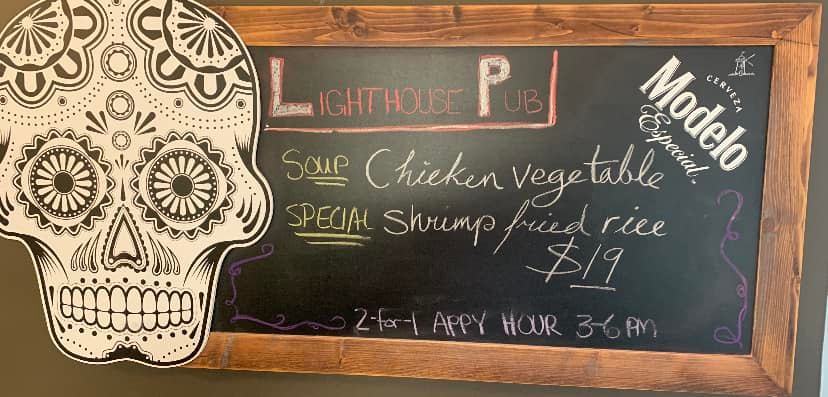 LIGHTHOUSE PUB
CERVEZA
Modelo
Especial
SOUP Chicken vegetable
SPECIAL Shrimp fried rice
$19
2-for-1 APPY HOUR 3-6 PM